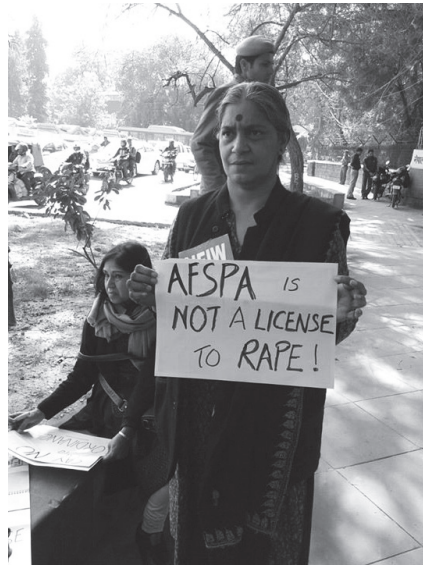 NFIW
AFSPA IS
NOT A LICENSE
TO RAPE!